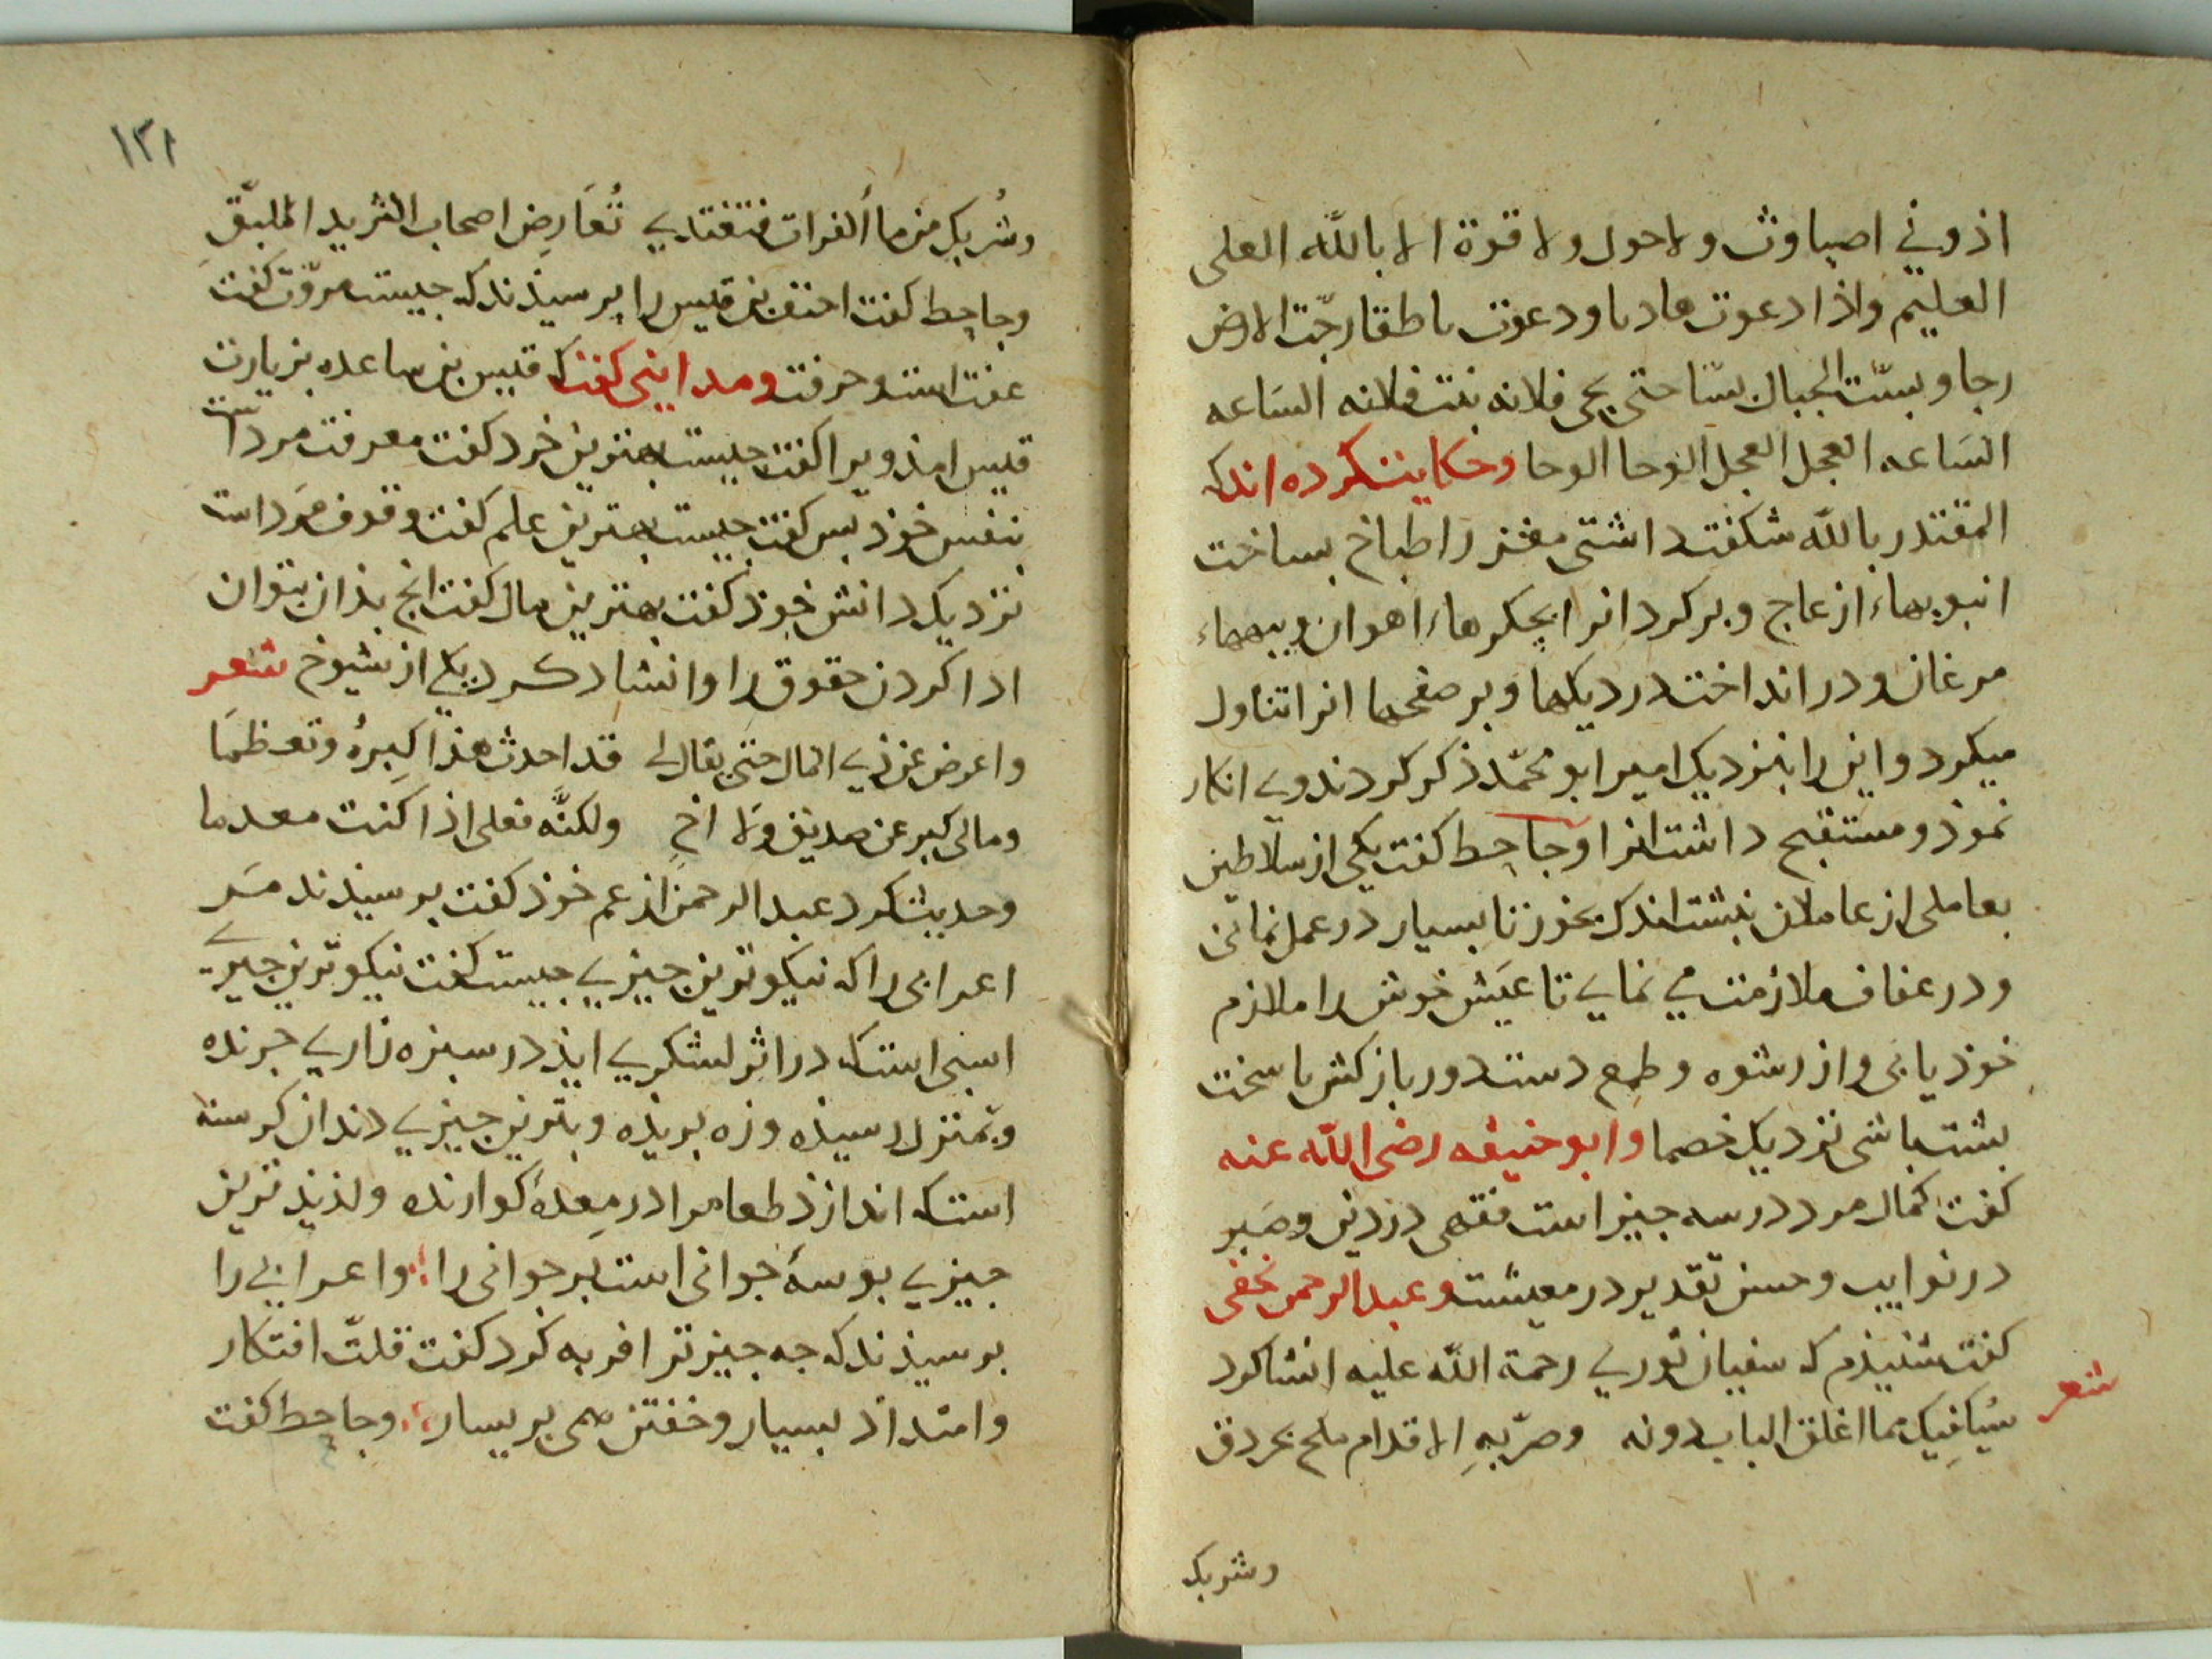 اذوني اصباوث ولاحول ولا قوة الا بالله العلى
العليم واذا دعوت هاديا ودعوت ناطقا رجّت الارض
رجا وبسّت الجبال بسّا حتى يجى فلانه بنت فلانه الساعه
الساعه العجل العجل الوحا الوحا وحكايت كرده اند كه
المقتدر بالله شكفت داشتى مغز را طباخ بساخت
انبوبهاء از عاج وبر كرد انرا بجكرهاء اهوان وبيهاء
مرغان ودر انداخت در ديكها وبر صفحها انرا تناول
ميكرد واين را بنزديك امير ابو محمّد ذكر كردند وي انكار
نموذ ومستقبح داشت انرا وجاحظ كفت يكى از سلاطين
بعاملى از عاملان نبشت اندك بخور تا بسيار در عمل بمانى
ودر عفاف ملازمت مي نماي تا عيش خوش را ملازم
خوذ يابى واز رشوه وطمع دست دور باز كش تا سخت
بشت باشى نزديك خصما وابو حنيفه رضى الله عنه
كفت كمال مرد در سه جيز است فقهى در دين وصبر
در نوايب وحسن تقدير در معيشت وعبد الرحمن نخفى
كفت شنيذم كه سفيان ثوري رحمة الله عليه انشا كرد
شعر
سيُكافيك مما اغلق الباب دونه وضرّ به الاقدام ملح بجردق
وشربك
١٢٨
وشُربك من ماأ الفرات فتغتدي تُعَارِض اصحاب الثريد الملبّقِ
وجاحظ كفت احنف بن قيس را برسيذند كه جيست مروّت كفت
عفت است وحرفت ومدايني كفت كه قيس بن ساعده بزيارت
قيس امذ ويرا كفت جيست بهترين خرد كفت معرفت مردست
بنفس خوذ بس كفت جيست بهترين علم كفت وقوف مرد است
نزديك دانش خوذ كفت بهترين مال كفت انج بذان بتوان
ادا كردن حقوق را وانشاد كرد يكي از شيوخ شعر
واعرض عن ذي المال حتى يقال لى قد احدث هذا كِبرهُ وتعظما
ومالى كبر عن صديق ولا اخٍ ولكنّه فعلى اذا كنت معدما
وحديث كرد عبد الرحمن از عم خوذ كفت برسيذند مر
اعرابى را كه نيكوترين جيزي جيست كفت نيكوترين جيزي
اسبى است كه در اثر لشكري ايذ در سبزه زاري جرنده
وبمنزل رسيذه وزه بريذه وبترين جيزي دندان كرسنه
است كه اندازذ طعام را در معدهٔ كوارنده ولذيذ ترين
جيزي بوسهٔ جوانى است بر جوانى را واعرابي را
برسيذند كه جه جيز ترا فربه كرد كفت قلتّ افتكار
وامتداد بسيار وخفتن همى بر يسار وجاحظ كفت